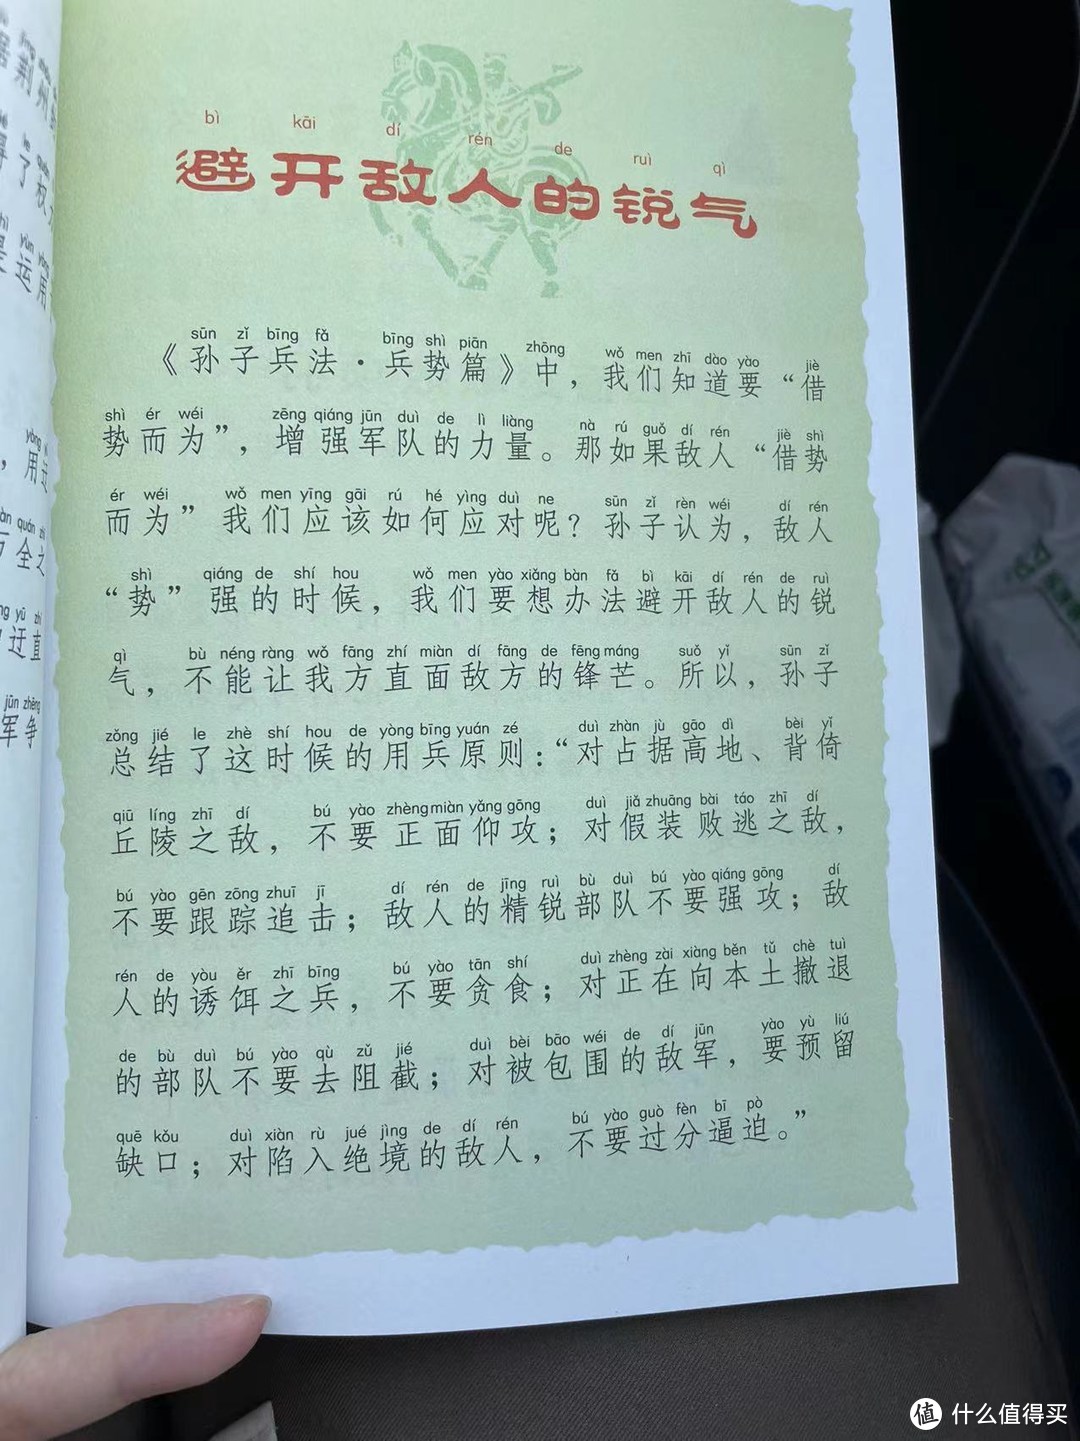 bì kāi dí rén de ruì qì
避开敌人的锐气
sūn zǐ bīng fǎ bīng shì piān zhōng wǒ men zhī dào yào jiè
《孙子兵法·兵势篇》中，我们知道要“借
shì ér wéi zēng qiáng jūn duì de lì liàng nà rú guǒ dí rén jiè shì
势而为”，增强军队的力量。那如果敌人“借势
ér wéi wǒ men yīng gāi rú hé yìng duì ne sūn zǐ rèn wéi dí rén
而为”我们应该如何应对呢？孙子认为，敌人
shì qiáng de shí hou wǒ men yào xiǎng bàn fǎ bì kāi dí rén de ruì
“势”强的时候，我们要想办法避开敌人的锐
qì bù néng ràng wǒ fāng zhí miàn dí fāng de fēng máng suǒ yǐ sūn zǐ
气，不能让我方直面敌方的锋芒。所以，孙子
zǒng jié le zhè shí hou de yòng bīng yuán zé duì zhàn jù gāo dì bèi yǐ
总结了这时候的用兵原则：“对占据高地、背倚
qiū líng zhī dí bú yào zhèng miàn yǎng gōng duì jiǎ zhuāng bài táo zhī dí
丘陵之敌，不要正面仰攻；对假装败逃之敌，
bú yào gēn zōng zhuī jī dí rén de jīng ruì bù duì bú yào qiáng gōng dí
不要跟踪追击；敌人的精锐部队不要强攻；敌
rén de yòu ěr zhī bīng bú yào tān shí duì zhèng zài xiàng běn tǔ chè tuì
人的诱饵之兵，不要贪食；对正在向本土撤退
de bù duì bú yào qù zǔ jié duì bèi bāo wéi de dí jūn yào yù liú
的部队不要去阻截；对被包围的敌军，要预留
quē kǒu duì xiàn rù jué jìng de dí rén bú yào guò fèn bī pò
缺口；对陷入绝境的敌人，不要过分逼迫。”
值 什么值得买